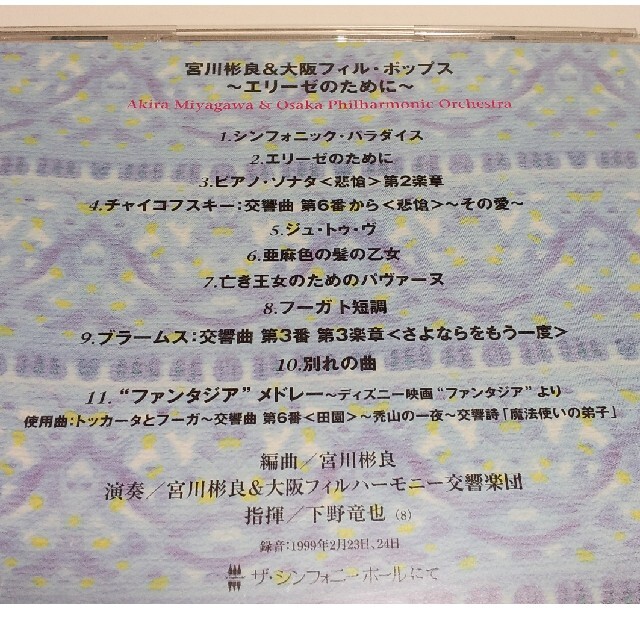 宮川彬良&大阪フィル・ポップス
～エリーゼのために～
Akira Miyagawa & Osaka Philharmonic Orchestra
1.シンフォニック・パラダイス
2.エリーゼのために
3.ピアノ・ソナタ<悲愴>第2楽章
4.チャイコフスキー:交響曲 第6番から<悲愴>～その愛～
5.ジュ・トゥ・ヴ
6.亜麻色の髪の乙女
7.亡き王女のためのパヴァーヌ
8.フーガ ト短調
9.ブラームス:交響曲 第3番 第3楽章<さよならをもう一度>
10.別れの曲
11.“ファンタジア”メドレー～ディズニー映画“ファンタジア”より
使用曲:トッカータとフーガ～交響曲 第6番<田園>～禿山の一夜～交響詩「魔法使いの弟子」
編曲／宮川彬良
演奏／宮川彬良&大阪フィルハーモニー交響楽団
指揮／下野竜也(8)
録音:1999年2月23日、24日
ザ・シンフォニーホールにて